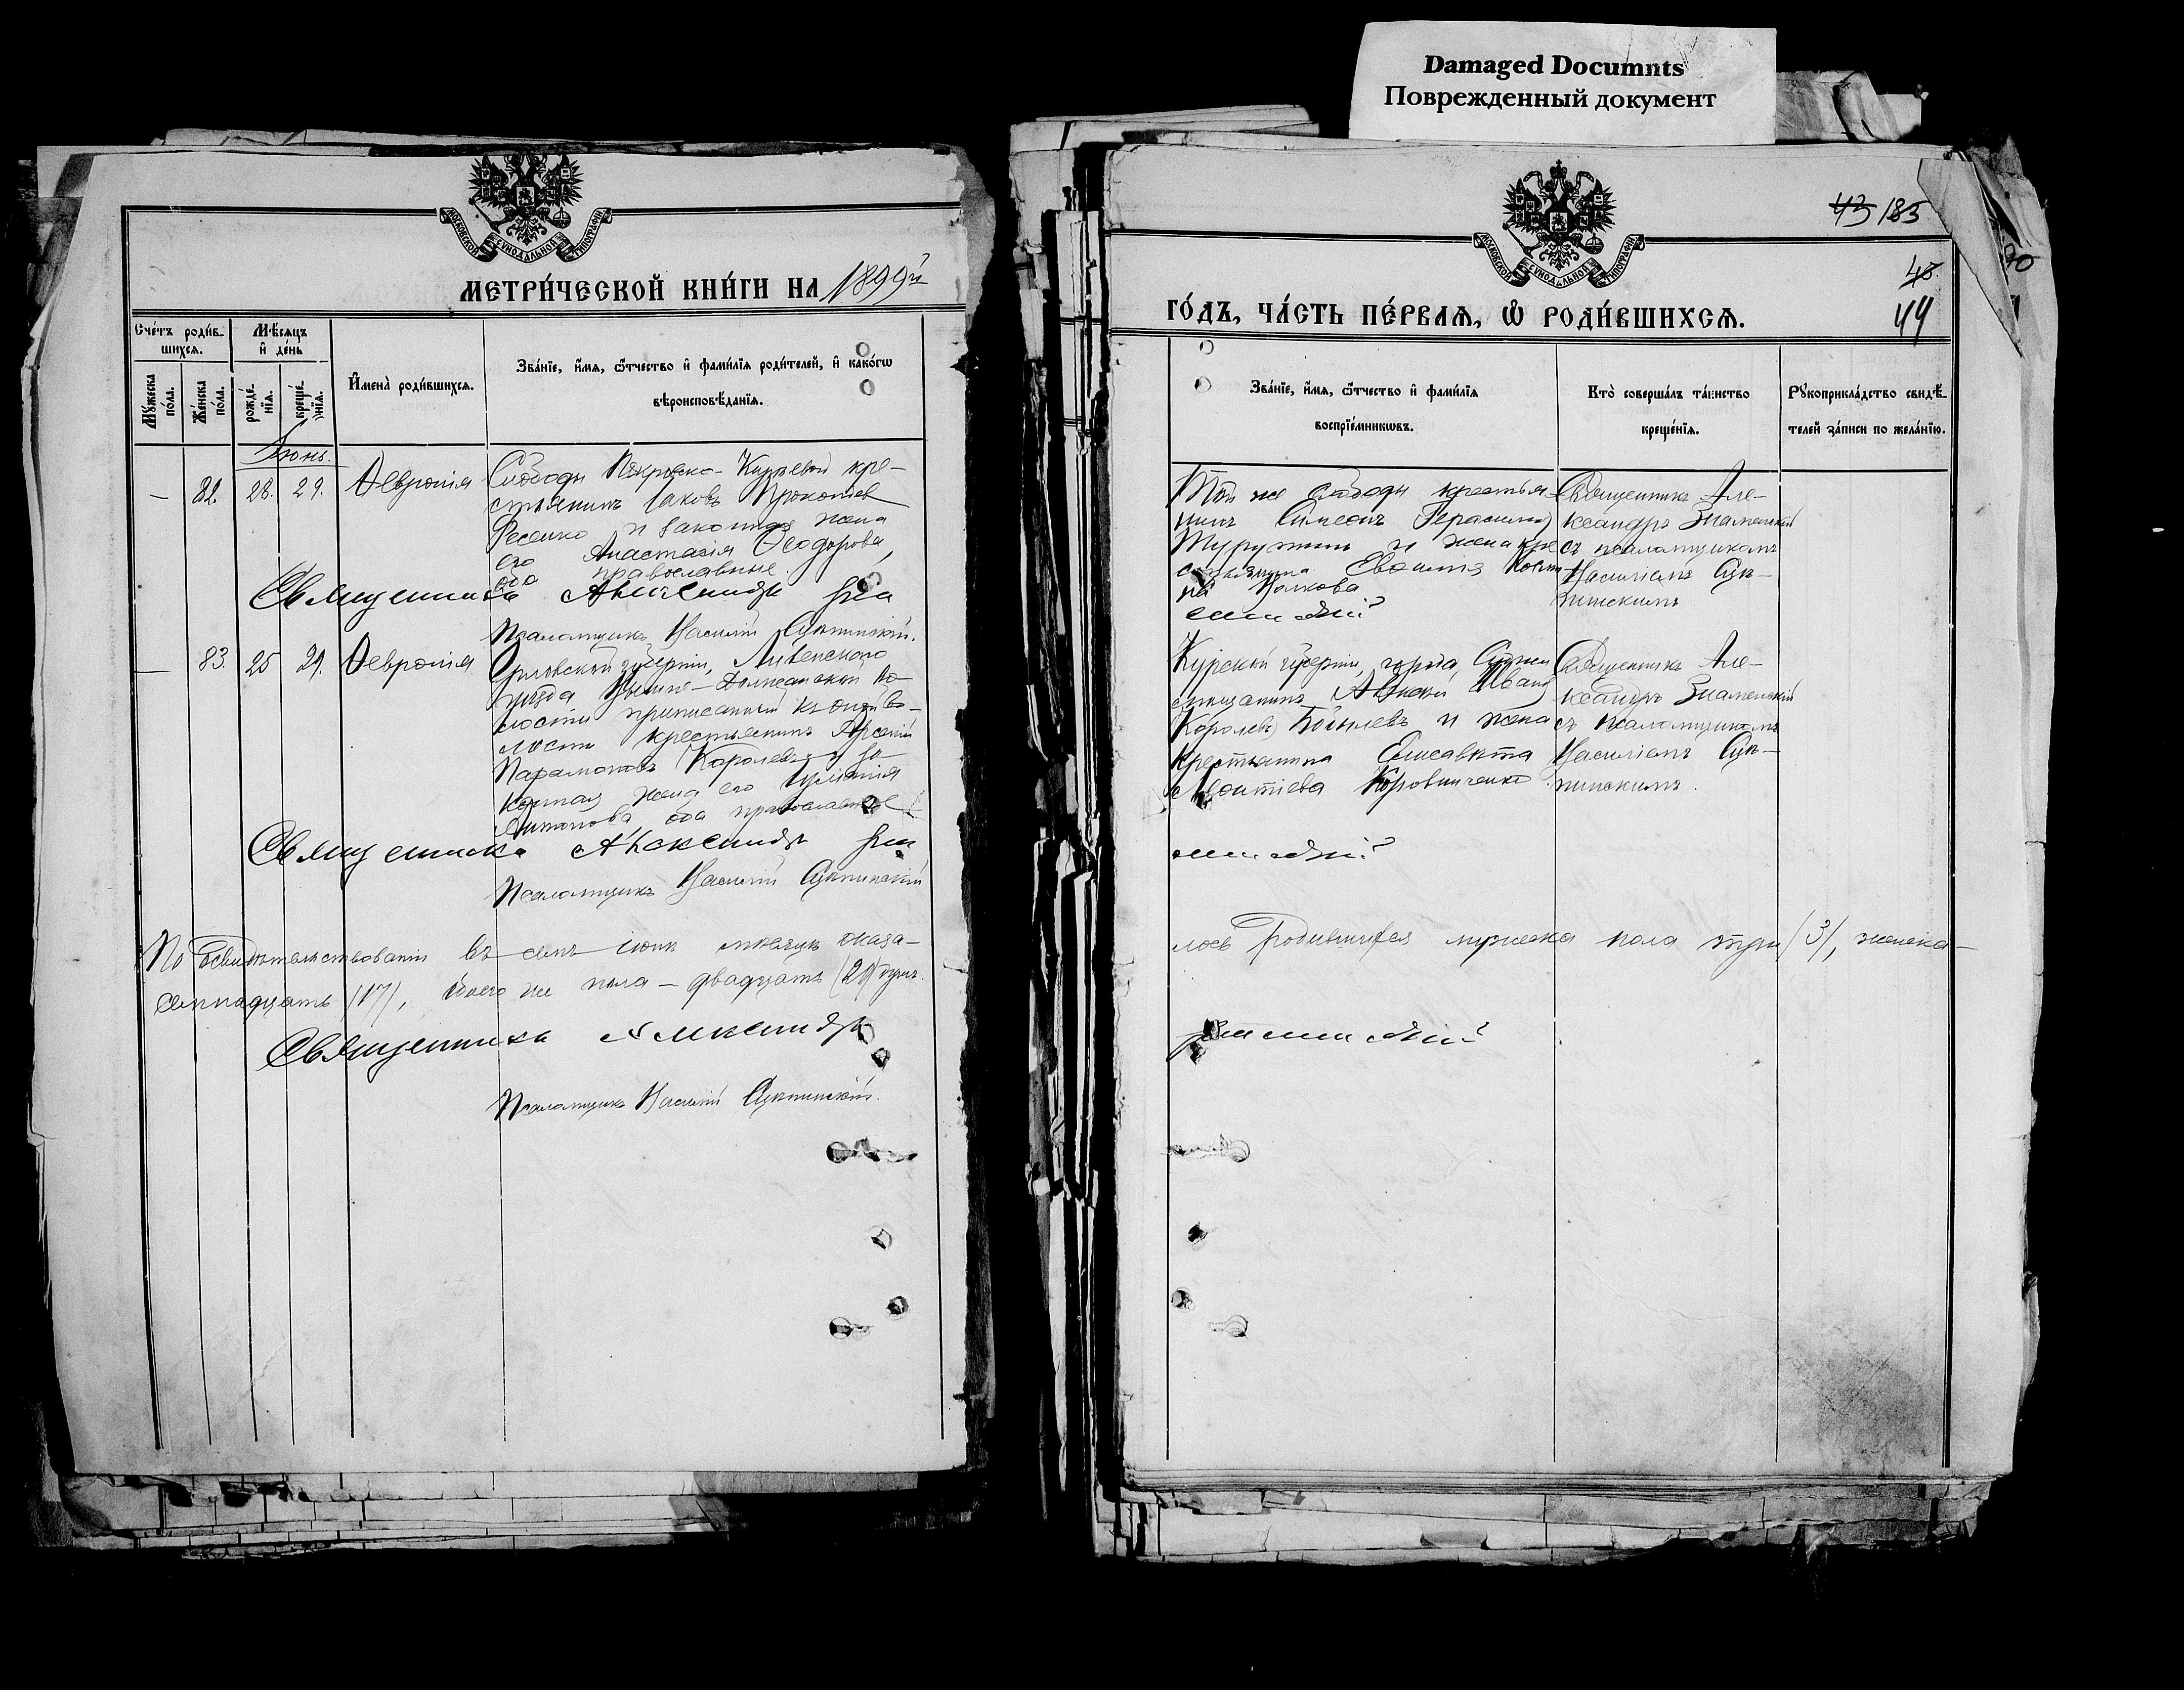 Damaged Documnts
Поврежденный документ
МОСКОВСКОЙ СУНОДАЛЬНОЙ ТИПОГРАФІИ
МЕТРИ́ЧЕСКОЙ КНИ́ГИ НА 1899й
Сче́тъ роди́в-
шихся.
Мѣ́сяцъ
и҆ де́нь
Му́жеска
по́ла.
Же́нска
по́ла.
рожде́-
нїя.
креще́-
нїя.
И҆мена̀ роди́вшихся.
Зва́нїе, и҆́мя, ѻ҆́тчество и҆ фами́лїя роди́телей, и҆ како́гѡ
вѣроисповѣ́данїя.
Іюнь.
— 82. 28. 29. Ѳевронія
Слободы Покровско- кре-
стьянинъ Іаковъ Прокопіев
и законная жена
его Анастасія Ѳеодорова,
оба православные.
Священникъ Александръ Зна
Псаломщикъ Василій
— 83. 25 29. Ѳевронія
Орловской губерніи, Ливенскаго
уѣзда во-
лости приписанный къ оной во-
лости крестьянинъ Арсеній
Парамоновъ Королевъ и за-
конная жена его Іуліанія
Антонова, оба православные
Священникъ Александръ Зна
Псаломщикъ Василій
По освидѣтельствованіи въ семъ іюнѣ мѣсяцѣ оказа-
семнадцать (17), обоего же пола — двадцать (20) душъ.
Священникъ Александръ
Псаломщикъ Василій
МОСКОВСКОЙ СУНОДАЛЬНОЙ ТИПОГРАФІИ
43 185
43
44
ГО́ДЪ, ЧА́СТЬ ПЕ́РВАЯ, Ѡ҆ РОДИ́ВШИХСЯ.
Зва́нїе, и҆́мя, ѻ҆́тчество и҆ фами́лїя
воспрїе́мникѡвъ.
Кто̀ соверша́лъ та́инство
креще́нїя.
Рꙋкоприкла́дство свидѣ́-
телей за́писи по жела́нїю.
Той же слободы крестья-
нинъ Симеонъ Герасимов
и жена кре
стьянина Евдокія
на Волкова
менскій
Священникъ Але-
ксандръ Знаменскій
съ псаломщикомъ
Василіемъ
Курской губерніи, города Суджи
мѣщанинъ Алексій Иванов
Королевъ и жена
крестьянина Елисавета
Леонтіева Коровниченко
менскій
Священникъ Але-
ксандръ Знаменскій
съ псаломщикомъ
Василіемъ
лось родившихся мужеска пола три (3), женска —
Знаменскій